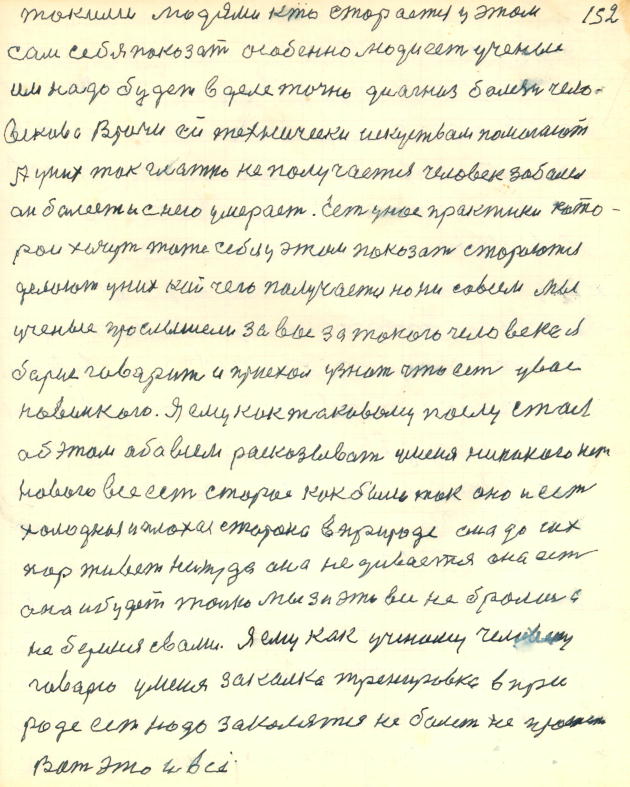 такими людями кто сторается у этом 152
сам себя показат особенно люди ест ученые
им надо будет в деле точно диагноз болезни чело-
векова Врачи ей технически искуствам помогают
А у них так гладко не получается человек заболел
он болеет и с него умерает. Ест уное практики кото-
рои хочут тоже себя у этом показат стороются
делоют у них кой чего получается но ни совсем Мы
ученые прослышели за вас за такого человека и
барис говарит и приехал узнат что ест у вас
новинкого. Я ему как таковому послу стал
об этом абавсем расказыват у меня никакого нет
нового все ест старое как было так оно и ест
холодная и плохая сторона в природе она до сих
пор живет никуда она не дивается она ест
она и будет толко мы за эта все не бролис и
не беремся свами. Я ему как ученому человеку
говарю у меня закалка тренировка в при
роде ест надо заколятся не болет не
Вот это и все.